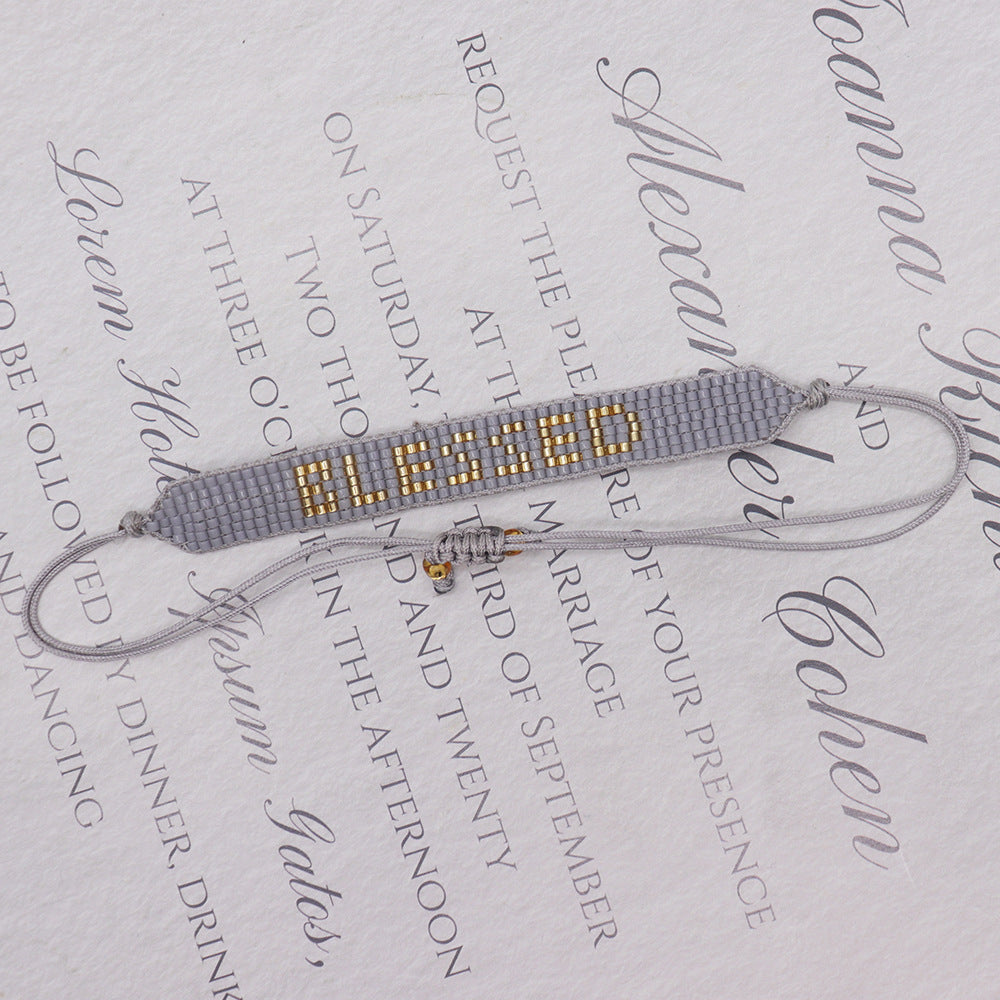 BLESSED
Joanna
AND
Alexander Cohen
REQUEST THE PLEASURE OF YOUR PRESENCE
AT MARRIAGE
ON SATURDAY, THIRD OF SEPTEMBER
TWO THOUSAND AND TWENTY
AT THREE O'CLOCK IN THE AFTERNOON
Lorem Hotel Ihsum Gatos,
TO BE FOLLOWED BY DINNER, DRINK
AND DANCING